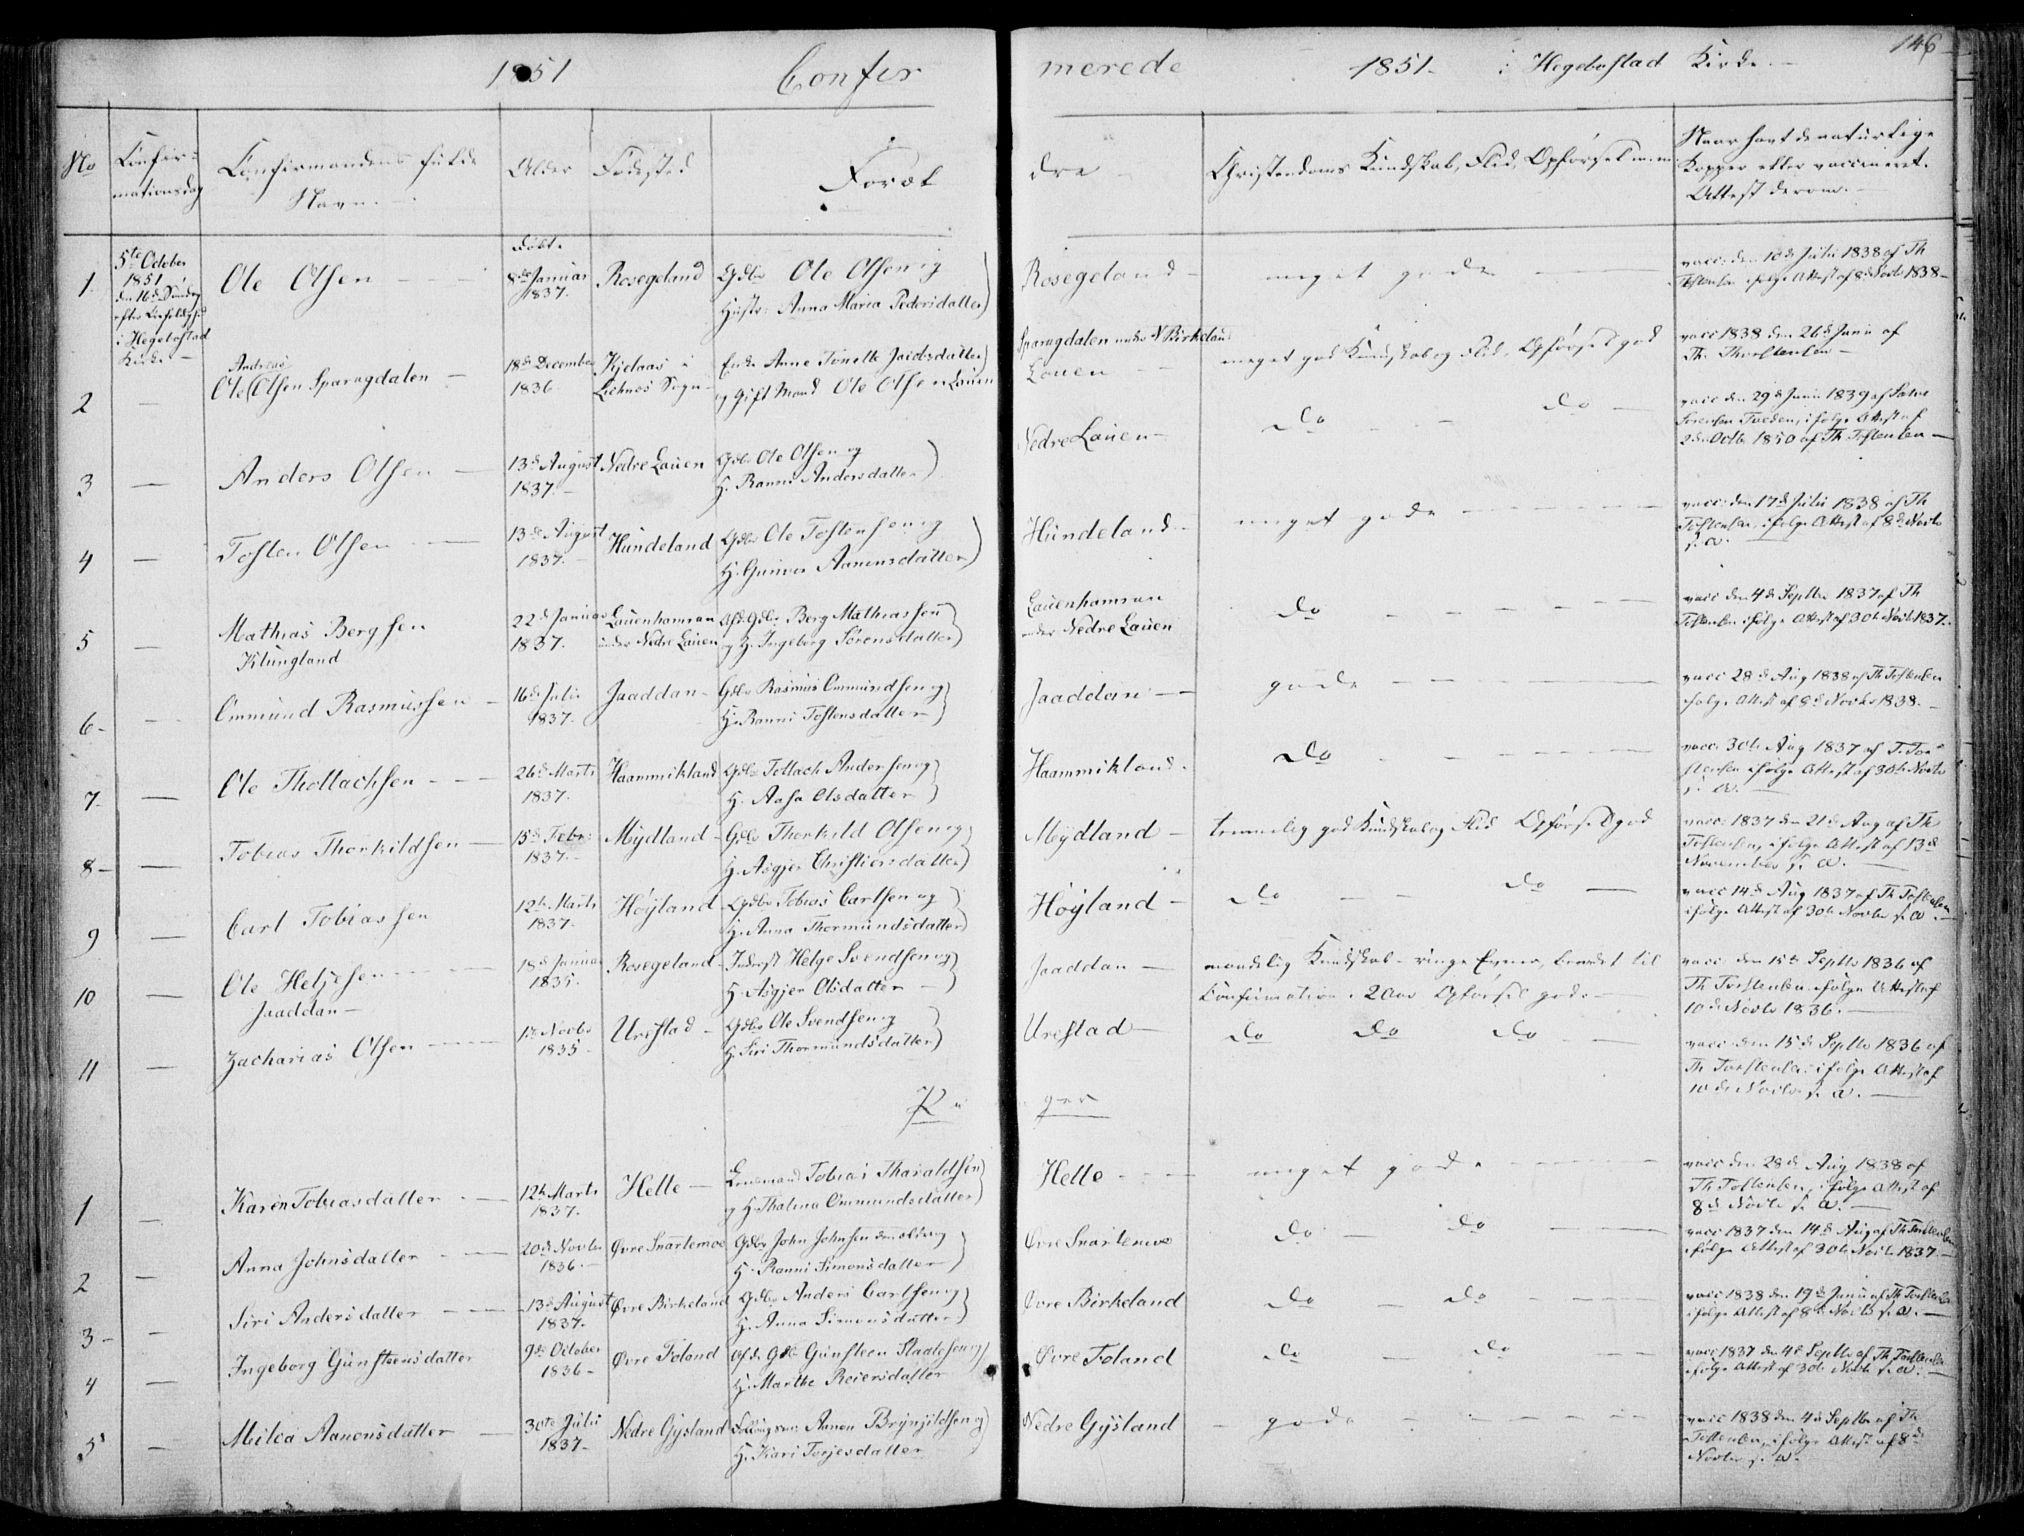 1851 Confir merede 1851. i Hegebostad Kirke. 146
No Confirmationsdag Confirmandens fulde Navn. Alder Fødested Foræl dre Christendoms Kundskab, Flid, Opførsel m.m. Naar havt de naturlige Kopper eller vaccineret. Attest derom.
Døbt.
1 5te October 1851 den 16de Søndag i Hegebostad Kirke Ole Olsen 8de Januar 1837. Rosegeland Gdbr Ole Olsen og Hustr: Anna Maria Pedersdatter Rosegeland meget gode vacc: den 10de Julii 1838 af Th Tostensen ifølge Attest af 8de Novbr 1838
2 Ole Andreas Olsen Sparagdalen 18de December 1836 Kjelaas i Liehnes Sogn Enke Anne Tonette Jacobsdatter og gift Mand Ole Olsen Lauen Sparagdalen under N Birkeland Lauen meget god Kundskab og Flid, Opførsel god vacc 1838 den 26de Junii af Th. Thorstensen
3 Anders Olsen 13de August 1837. Nedre Lauen Gdbr Ole Olsen og H. Ranni Andersdatter Nedre Lauen Do Do vacc den 29de Junii 1839 af Sorensen Tveden, ifølge Attest af 2den Octbr 1850 af Th Tostensen
4 Tosten Olsen 13de August 1837. Hundeland Gdbr Ole Tostensen og H. Gunvor Aanensdatter Hundeland meget gode vacc: den 17de Julii 1838 af Th Tostensen, ifølge Attest af 8de Novbr s. A.
5 Mathias Bergsen Klungland 22de Januar 1837. Lauenhamran under Nedre Lauen Gdbr Berg Mathiassen og H. Ingeborg Sørensdatter Lauenhamran under Nedre Lauen Do vacc den 4de Septbr 1837 af Th Tostensen ifølge Attest af 30te Novbr 1837.
6 Ommund Rasmussen 16de Julii 1837. Jaaddan Gdbr Rasmus Ommundsen og H. Ranni Tostensdatter Jaaddan gode vacc 28de Aug 1838 af Th Tostensen ifølge Attest af 8de Novbr 1838.
7 Ole Thollachsen 26de Marts 1837. Haammikland Gdbr Tollach Andersen og H. Aasa Olsdatter Haammikland Do vacc: 30te Aug 1837 af T. Torstensen ifølge Attest af 30te Novbr s. A.
8 Tobias Thorkildsen 15de Febr: 1837. Mÿdland Gdbr Thorkild Olsen og H. Asgjer Christiensdatter Mÿdland temmelig god Kundskab og Flid Opførsel god vacc: 1837 den 21de Aug af Th Tostensen, ifølge Attest af 13de November s. A.
9 Carl Tobiassen 12te Marts 1837. Høÿland Gdbr Tobias Carlsen og H. Anna Thormundsdatter Høÿland Do Do vacc 14de Aug 1837 af Th Tostensen ifølge Attest af 30te Novbr s. A.
10 Ole Helgesen Jaaddan 18de Januar 1835. Rosegeland Inderst Helge Svendsen og H. Asgjer Olsdatter Jaaddan maadelig Kundskab ringe Evner, beredet til Confirmation i 2 Aar Opførsel gode vacc: den 15de Septbr 1836 af Th Torstensen ifølge Attest af 10de Novbr 1836.
11 Zacharias Olsen 1te Novbr 1835 Urestad Gdbr Ole Svendsen og H. Siri Thormundsdatter Urestad Do Do Do vacc: den 15de Septbr 1836 af Th Torstensen ifølge Attest af 10de Novbr s. A.
Pi ger
1 Karen Tobiasdatter 12te Marts 1837. Helle Lensmand Tobias Tharaldsen og H. Thalena Ommundsdatter Helle meget gode vacc den 28de Aug 1838 af Th Tostensen, ifølge Attest af 8de Novbr s. A.
2 Anna Johnsdatter 20de Novbr 1836. Øvre Snartemoe Gdbr John Johnsen den eldre og H. Ranni Simonsdatter Øvre Snartemoe Do Do vacc 1837 den 14de Aug af Th Torstensen ifølge Attest af 30te Novbr 1837.
3 Siri Andersdatter 13de August 1837. Øvre Birkeland Gdbr Anders Carlsen og H. Anna Simonsdatter Øvre Birkeland Do Do vacc 1838 den 19de Junii af Th Torstensen ifølge Attest af 8de Novbr s. A.
4 Ingeborg Gunsteensdatter 9de October 1836 Øvre Toland Gdbr Gunsteen Staalesen og H. Marthe Reiersdatter Øvre Toland Do Do vacc 1837 den 4de Septbr af Th Tostensen ifølge Attest af 30te Novbr s. A.
5 Milca Aanensdatter 30te Julii 1837 Nedre Gÿsland Aanen Brÿnjildsen og H. Kari Torjesdatter Nedre Gÿsland gode vacc 1838 den 4de Septbr af Th Tostensen, ifølge Attest af 8de Novbr s. A.